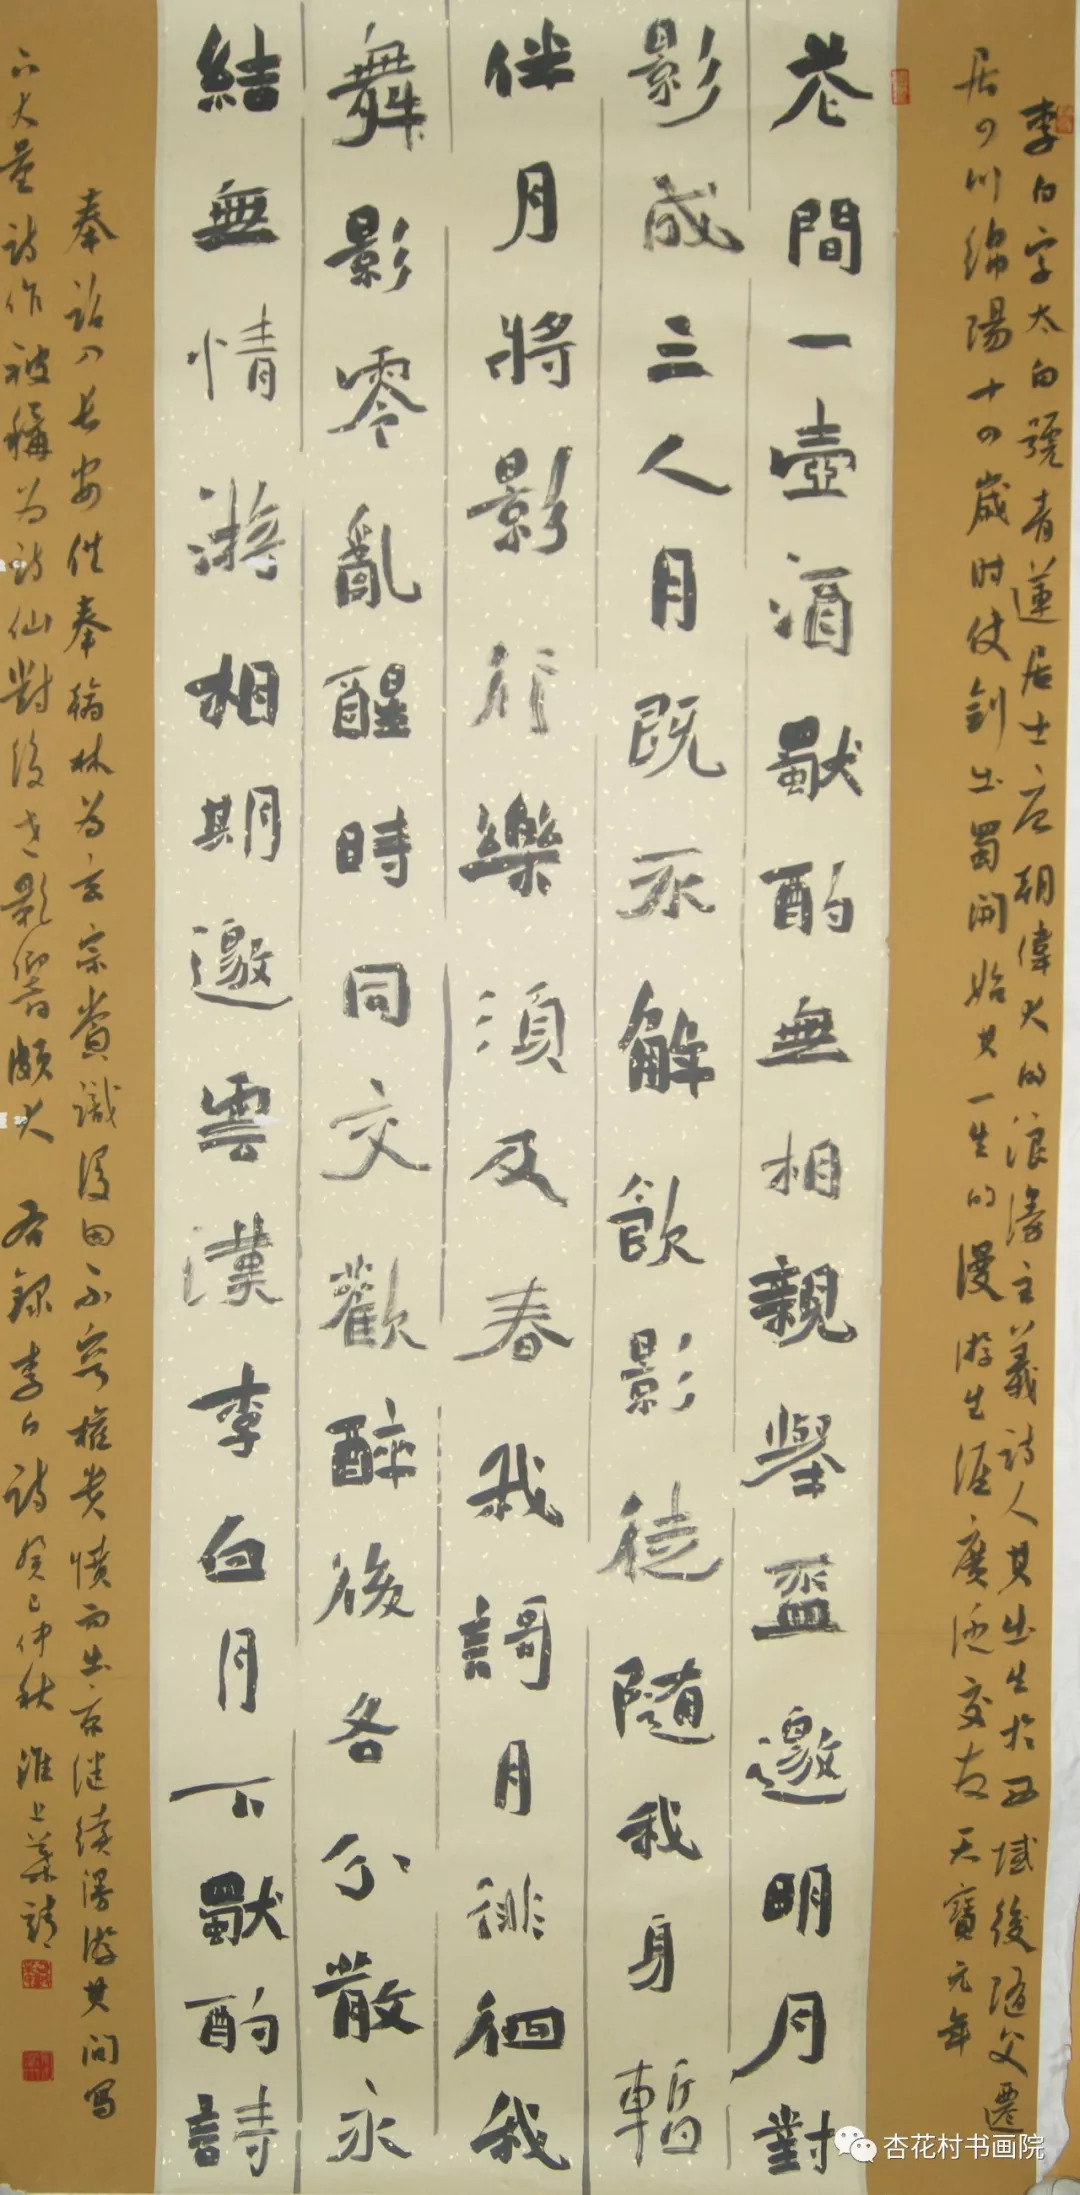 李白字太白號青蓮居士唐朝偉大的浪漫主義詩人其出生於西域後隨父遷
居四川綿陽廿四歲时仗劍出蜀開始其一生的漫游生涯廣泛交友天寶元年
花間一壺酒獨酌無相親舉盃邀明月對
影成三人月既不解飲影徒隨我身暫
伴月將影行樂須及春我謌月徘徊我
舞影零亂醒時同交歡醉後各分散永
結無情游相期邈雲漢李白月下獨酌詩
奉詔入长安供奉翰林为玄宗賞識後因不容權贵憤而出京继續漫游其间写
下大量詩作被稱为詩仙對後世影響颇大 右録李白詩癸巳仲秋淮上
杏花村书画院